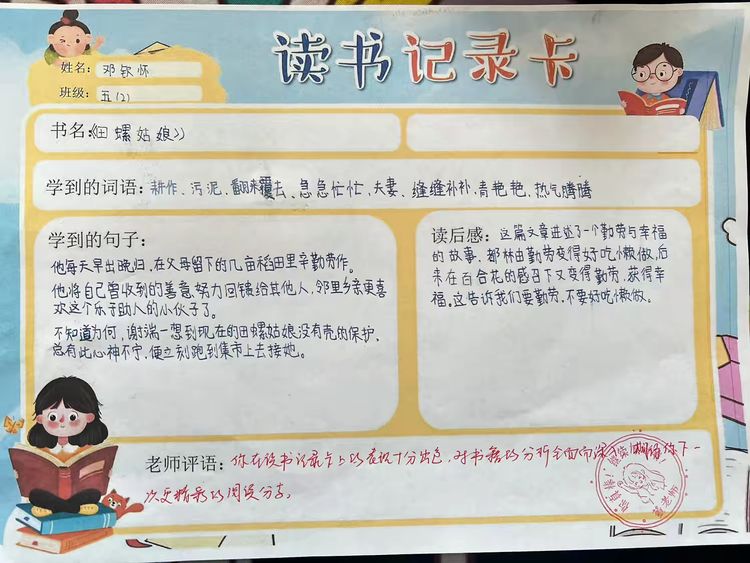 读书记录卡
姓名：邓钦怀
班级：五(2)
书名：《田螺姑娘》
学到的词语：耕作、污泥、翻来覆去、急急忙忙、夫妻、缝缝补补、青艳艳、热气腾腾
学到的句子：
他每天早出晚归，在父母留下的几亩稻田里辛勤劳作。
他将自己曾收到的善意，努力回馈给其他人，邻里乡亲更喜
欢这个乐于助人的小伙子了。
不知道为何，谢端一想到现在的田螺姑娘没有壳的保护，
总有此心神不宁，便立刻跑到集市上去接她。
读后感：这篇文章讲述了一个勤劳与幸福
的故事，都林由勤劳变得好吃懒做，后
来在百合花的感召下又变得勤劳，获得幸
福。这告诉我们要勤劳，不要好吃懒做。
老师评语：你在读书记录卡上的表现十分出色，对书籍的分析全面而深 你下一
次更精彩的阅读分享。